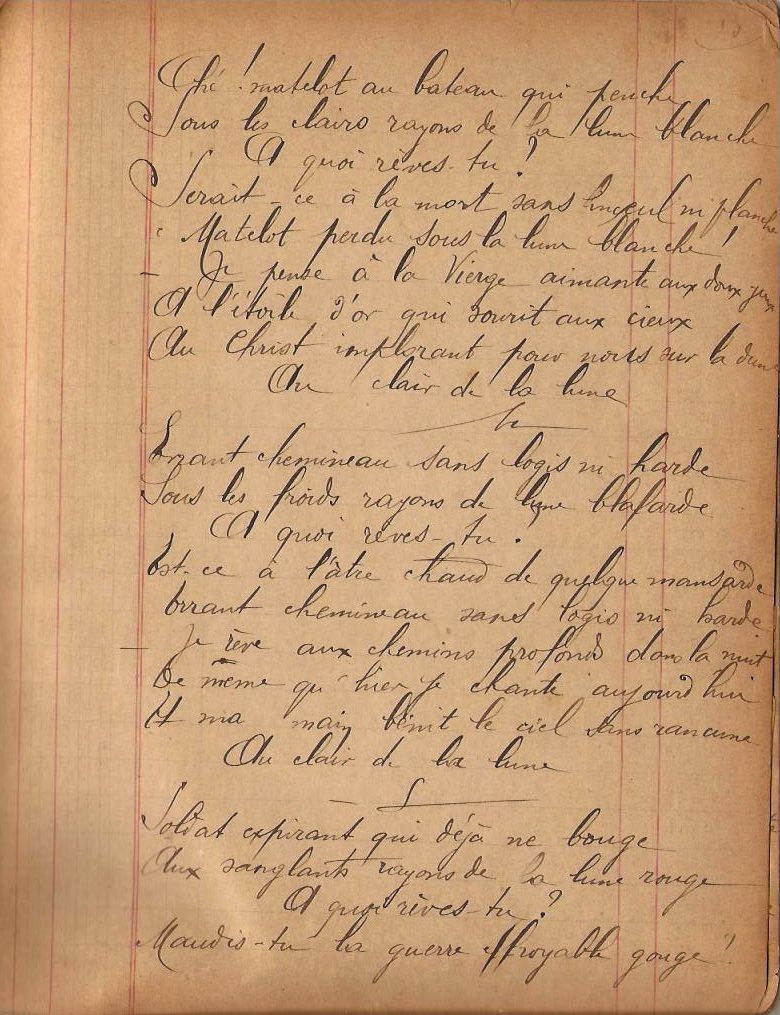 Ohé ! matelot au bateau qui penche
Sous les clairs rayons de la lune blanche
A quoi rêves-tu ?
Serait-ce à la mort sans linceul ni planche
Matelot perdu sous la lune blanche !
- Je pense à la Vierge aimante aux doux yeux
A l'étoile d'or qui sourit aux cieux
Au Christ implorant pour nous sur la dune
Au clair de la lune
Errant chemineau sans logis ni harde
Sous les froids rayons de lune blafarde
A quoi rêves-tu ?
Est-ce à l'âtre chaud de quelque mansarde
Errant chemineau sans logis ni harde
- Je rêve aux chemins profonds dans la nuit
De même qu'hier je chante aujourd'hui
Et ma main bénit le ciel sans rancune
Au clair de la lune
Soldat expirant qui déjà ne bouge
Aux sanglants rayons de la lune rouge
A quoi rêves-tu ?
Maudis-tu la guerre effroyable gouge !